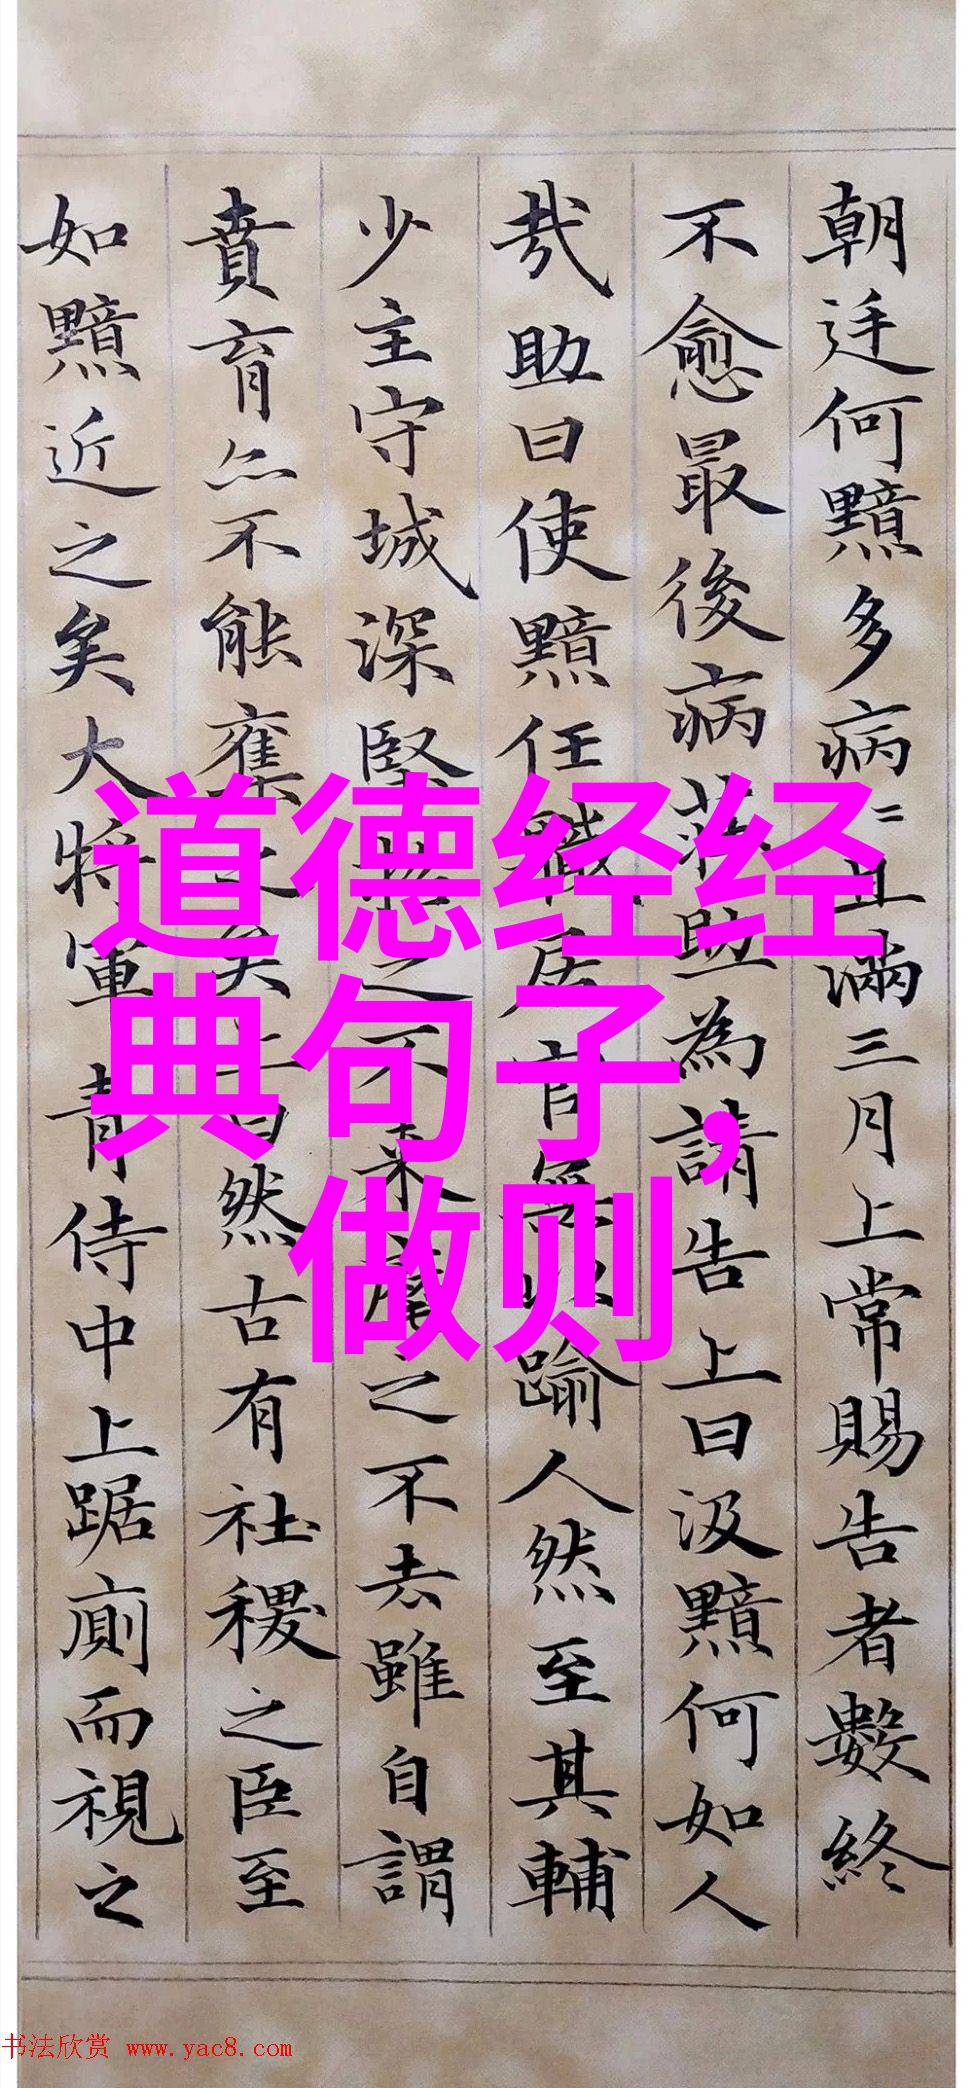 朝廷何黯多病〻且滿三月上常賜告者數終
不愈最後病莊助為請告上曰汲黯何如人
哉助曰使黯任職居官無以踰人然至其輔
少主守城深堅招之不来麾之不去雖自謂
賁育亦不能奪之矣上曰然古有社稷之臣至
如黯近之矣大將軍青侍中上踞廁而視之
道德经经
典句子，
做则
书法欣赏 www.yac8.com